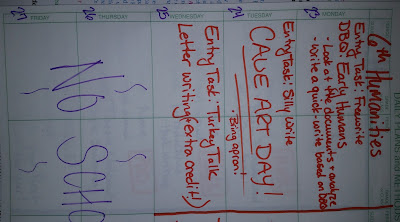 6th Humanities
23 MONDAY
Entry Task: Freewrite
DBQ: Early Humans
- Look at the documents + analyze
- Write a quick-write based on DBQ
24 TUESDAY
Entry Task: Silly Write
CAVE ART DAY!
- Bring apron!
25 WEDNESDAY
Entry Task: Turkey Talk
Letter Writing (extra credit!)
26 THURSDAY
27 FRIDAY
NO SCHO